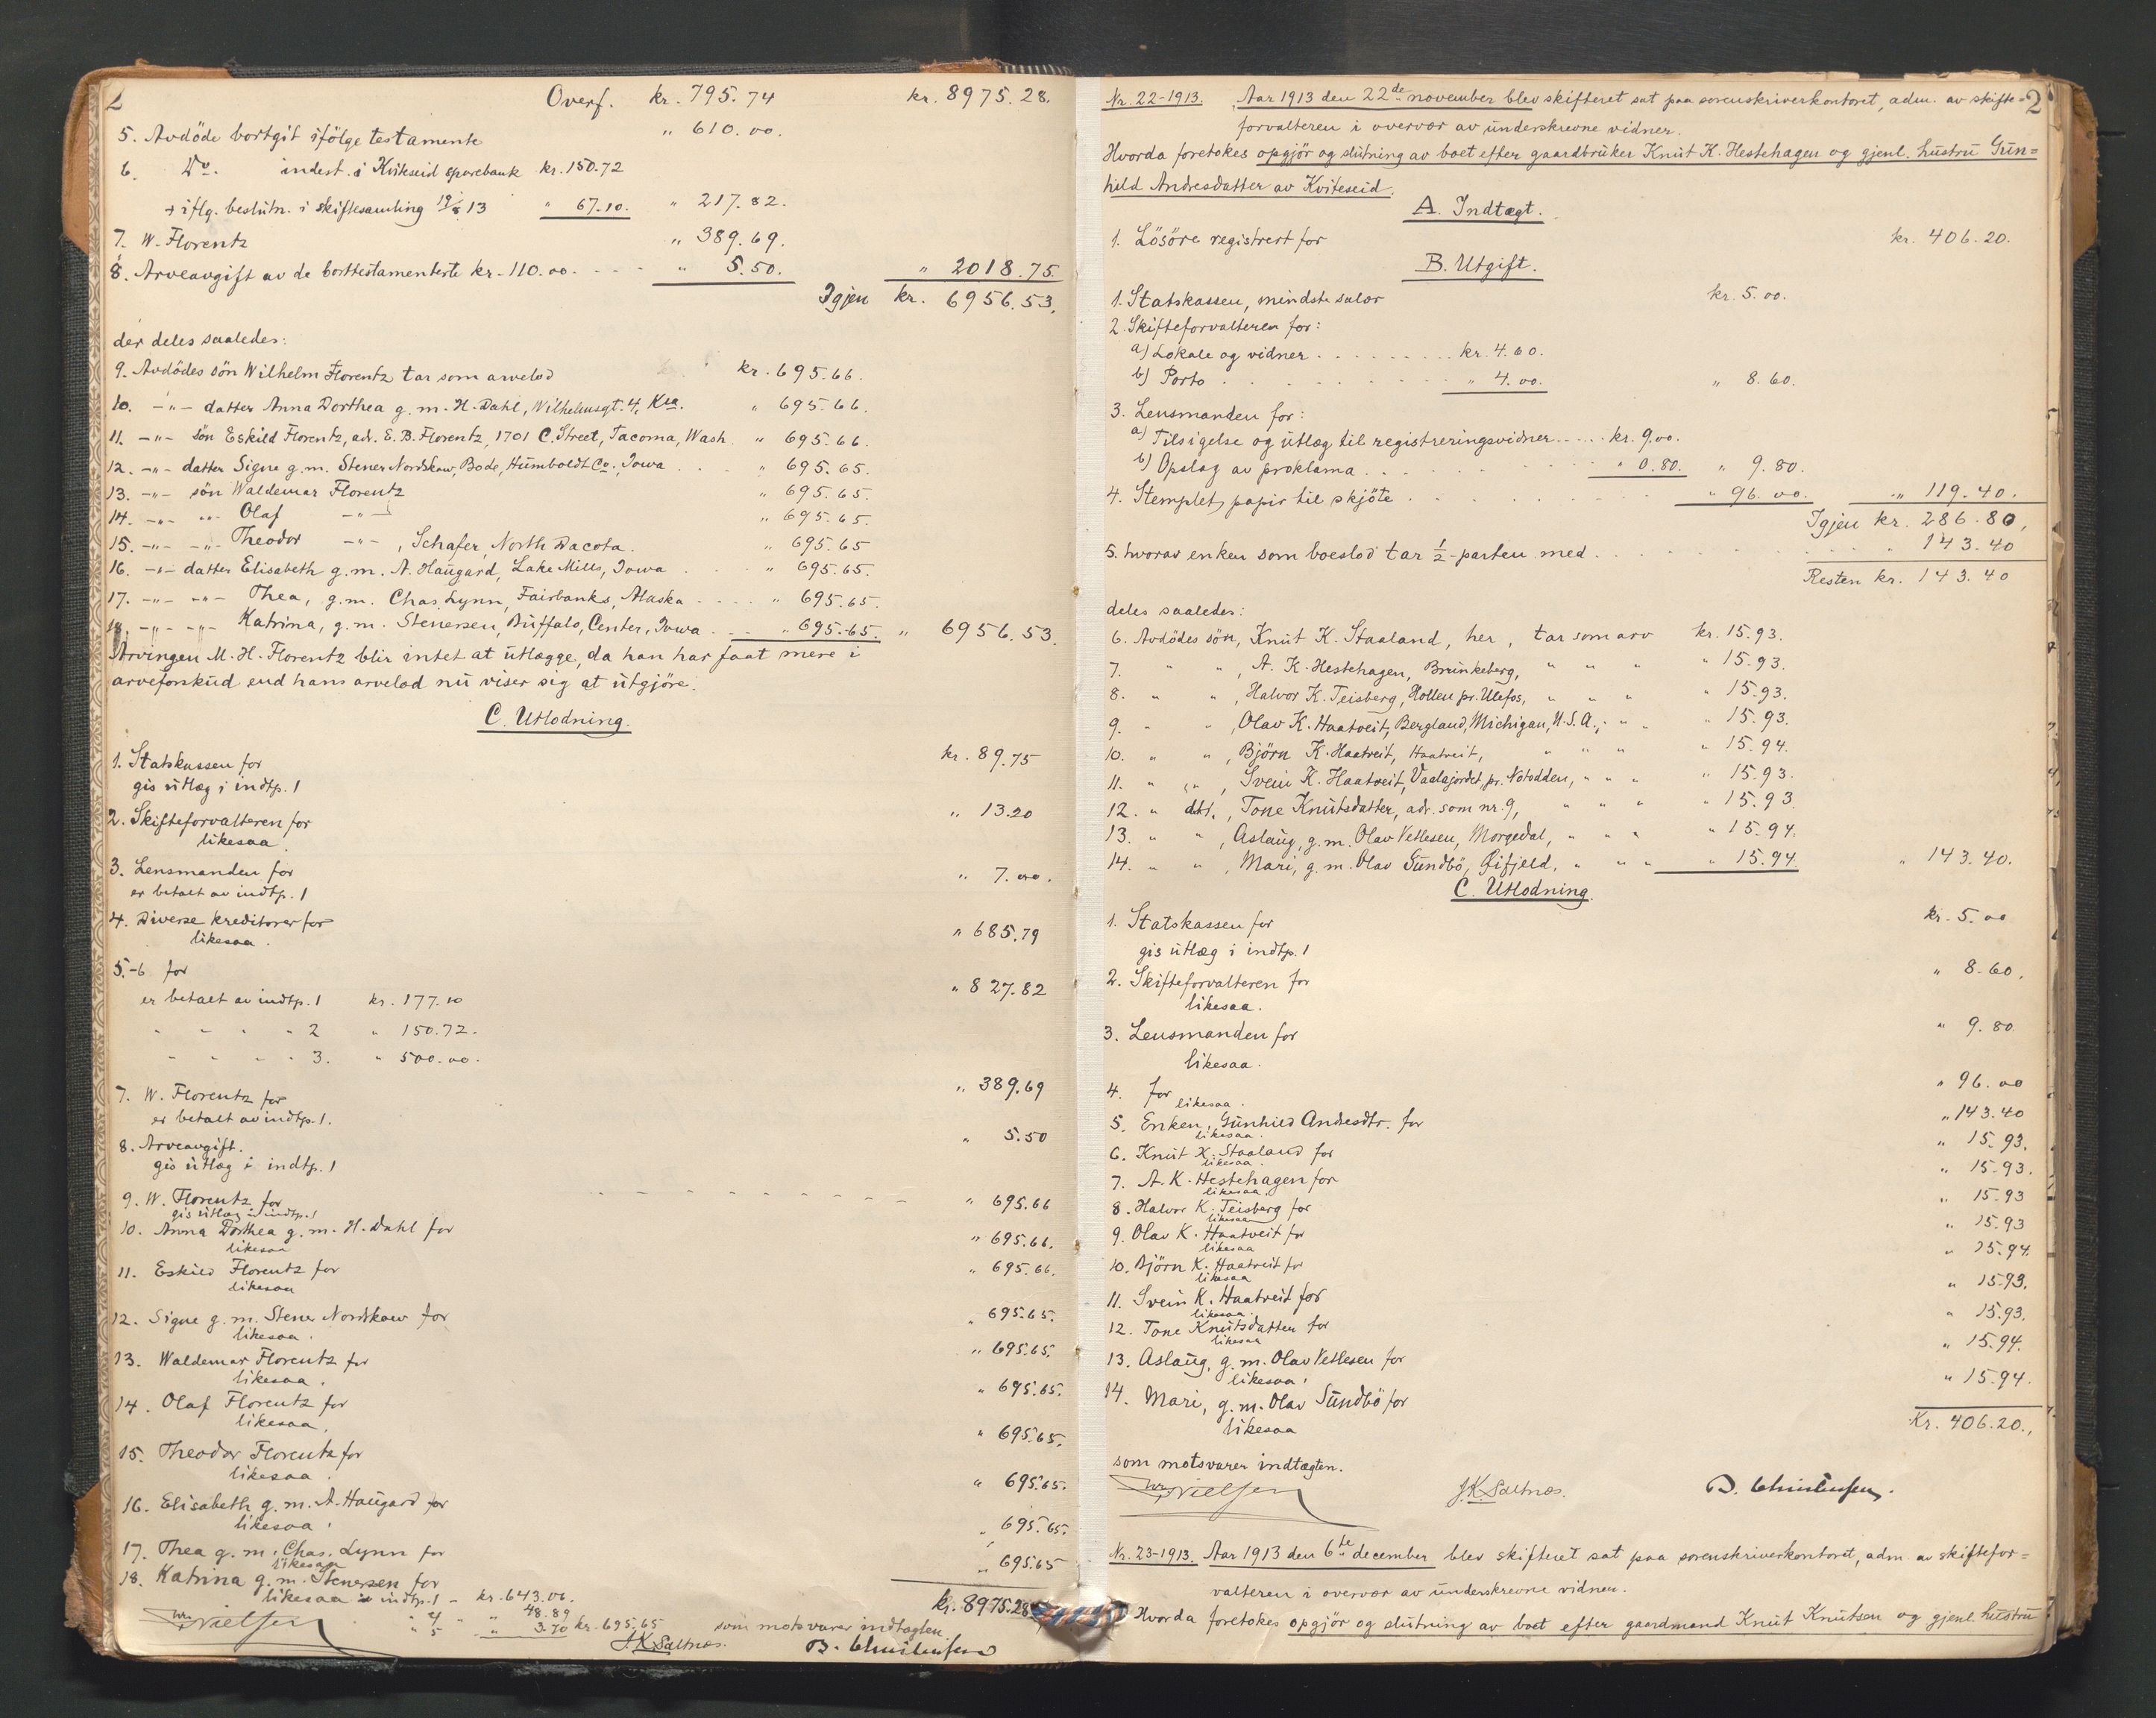 2
Overf. kr. 795.74 kr. 8975.28.
5. Avdöde bortgit ifölge testamente " 610.00.
6. Do. indest. i Kviteseid sparebank kr. 150.72
+ iflg. beslutn. i skiftesamling 19/8 13 " 67.10. " 217.82.
7. W. Florentz " 389.69.
8. Arveavgift av de borttestamenterte kr. 110.00. - - - " 5.50. " 2018.75.
Igjen kr. 6956.53.
der deles saaledes:
9. Avdödes sön Wilhelm Florentz tar som arvelod kr. 695.66.
10. -"- datter Anna Dorthea g.m. H. Dahl, Wilhelmsgt. 4, Kra. " 695.66.
11. -"- sön Eskild Florentz, adr. E.B. Florentz, 1701 C. Street, Tacoma, Wash. " 695.66.
12. -"- datter Signe g.m. Stener Nordskow, Bode, Humboldt Co., Iowa . . . " 695.65.
13. -"- sön Waldemar Florentz " 695.65.
14. -"- -"- Olaf -"- " 695.65.
15. -"- -"- Theodor -"- , Schafer, North Dacota. " 695.65
16. -"- datter Elisabeth g.m. A. Haugard, Lake Mills, Iowa . . . " 695.65.
17. -"- -"- Thea, g.m. Chas. Lynn, Fairbanks, Alaska - . . . " 695.65.
18. -"- -"- Katrina, g.m. Stenersen, Buffalo, Center, Iowa . . . " 695.65. " 6956.53.
Arvingen M.H. Florentz blir intet at utlægge, da han har faat mere i
arveforskud end hans arvelod nu viser sig at utgjöre.
C. Utlodning.
1. Statskassen for kr. 89.75
gis utlæg i indtp. 1
2. Skifteforvalteren for " 13.20
likesaa.
3. Lensmanden for " 7.00.
er betalt av indtp. 1
4. Diverse kreditorer for " 685.79
likesaa.
5.-6 for " 827.82
er betalt av indtp. 1 kr. 177.10
" " " " 2 " 150.72.
" " " " 3. " 500.00.
7. W. Florentz for " 389.69
er betalt av indtp. 1.
8. Arveavgift. " 5.50
gis utlæg i indtp. 1
9. W. Florentz for " 695.66
gis utlæg i indtp. 1
10. Anna Dorthea g.m. H. Dahl for " 695.66.
likesaa
11. Eskild Florentz for " 695.66.
likesaa
12. Signe g.m. Stener Nordskow for " 695.65.
likesaa.
13. Waldemar Florentz for " 695.65.
likesaa.
14. Olaf Florentz for " 695.65.
likesaa.
15. Theodor Florentz for " 695.65.
likesaa.
16. Elisabeth g.m. A. Haugard for " 695.65.
likesaa.
17. Thea g.m. Chas. Lynn for " 695.65.
likesaa
18. Katrina g.m. Stenersen for " 695.65
likesaa i indtp. 1 - kr. 643.06.
" 4 " " 48.89
" 5 " 3.70 kr. 695.65
kr. 8975.28
som motsvarer indtægten.
Nielsen J.K. Saltnes. B. Christensen
2
Nr. 22-1913. Aar 1913 den 22de november blev skifteret sat paa sorenskriverkontoret, adm. av skifte=
forvalteren i overvær av underskrevne vidner.
Hvorda foretokes opgjör og slutning av boet efter gaardbruker Knut K. Hestehagen og gjenl. hustru Gun=
hild Andresdatter av Kviteseid.
A. Indtægt.
1. Lösöre registrert for kr. 406.20.
B. Utgift.
1. Statskassen, mindste salær kr. 5.00.
2. Skifteforvalteren for:
a) Lokale og vidner . . . . . . . . kr. 4.60.
b) Porto . . . . . . . . . . " 4.00. " 8.60.
3. Lensmanden for:
a) Tilsigelse og utlæg til registreringsvidner . . . . . kr. 9.00.
b) Opslag av proklama . . . . . . . . " 0.80. " 9.80.
4. Stemplet papir til skjöte . . . . . . . . " 96.00. " 119.40.
Igjen kr. 286.80.
5. hvorav enken som boeslod tar 1/2-parten med . . . . . . . . " 143.40
Resten kr. 143.40
deles saaledes:
6. Avdödes sön, Knut K. Staaland, her, tar som arv kr. 15.93.
7. " " , A. K. Hestehagen, Brunkeberg, " " " " 15.93.
8. " " , Halvor K. Teisberg, Hollen pr. Ulefos, " " " " 15.93.
9. " " , Olav K. Haatveit, Bergland, Michigan, U.S.A., " " " 15.93.
10. " " , Björn K. Haatveit, Haatveit, " " " " 15.94.
11. " " , Svein K. Haatveit, Vaalajordet, pr. Notodden, " " " " 15.93.
12. " dtr. , Tone Knutsdatter, adr. som nr. 9, " " " " 15.93.
13. " " , Aslaug, g.m. Olav Vetlesen, Morgedal, " " " " 15.94.
14. " " , Mari, g.m. Olav Sundbö, Öifjeld, " " " " 15.94. " 143.40.
C. Utlodning.
1. Statskassen for kr. 5.00
gis utlæg i indtp. 1
2. Skifteforvalteren for " 8.60.
likesaa.
3. Lensmanden for " 9.80
likesaa.
4. for " 96.00
likesaa.
5. Enken, Gunhild Andresdtr. for " 143.40
likesaa.
6. Knut K. Staaland for " 15.93.
likesaa.
7. A. K. Hestehagen for " 15.93.
likesaa.
8. Halvor K. Teisberg for " 15.93
likesaa
9. Olav K. Haatveit for " 15.93
likesaa
10. Björn K. Haatveit for " 15.94.
likesaa
11. Svein K. Haatveit for " 15.93.
likesaa.
12. Tone Knutsdatter for " 15.93.
likesaa
13. Aslaug, g.m. Olav Vetlesen for " 15.94.
likesaa.
14. Mari, g.m. Olav Sundbö for " 15.94.
likesaa
Kr. 406.20.
som motsvarer indtægten.
Nielsen J.K. Saltnes. B. Christensen.
Nr. 23-1913. Aar 1913 den 6te december blev skifteret sat paa sorenskriverkontoret, adm. av skiftefor=
valteren i overvær av underskrevne vidner.
Hvorda foretokes opgjör og slutning av boet efter gaardmand Knut Knutsen og gjenl. hustru